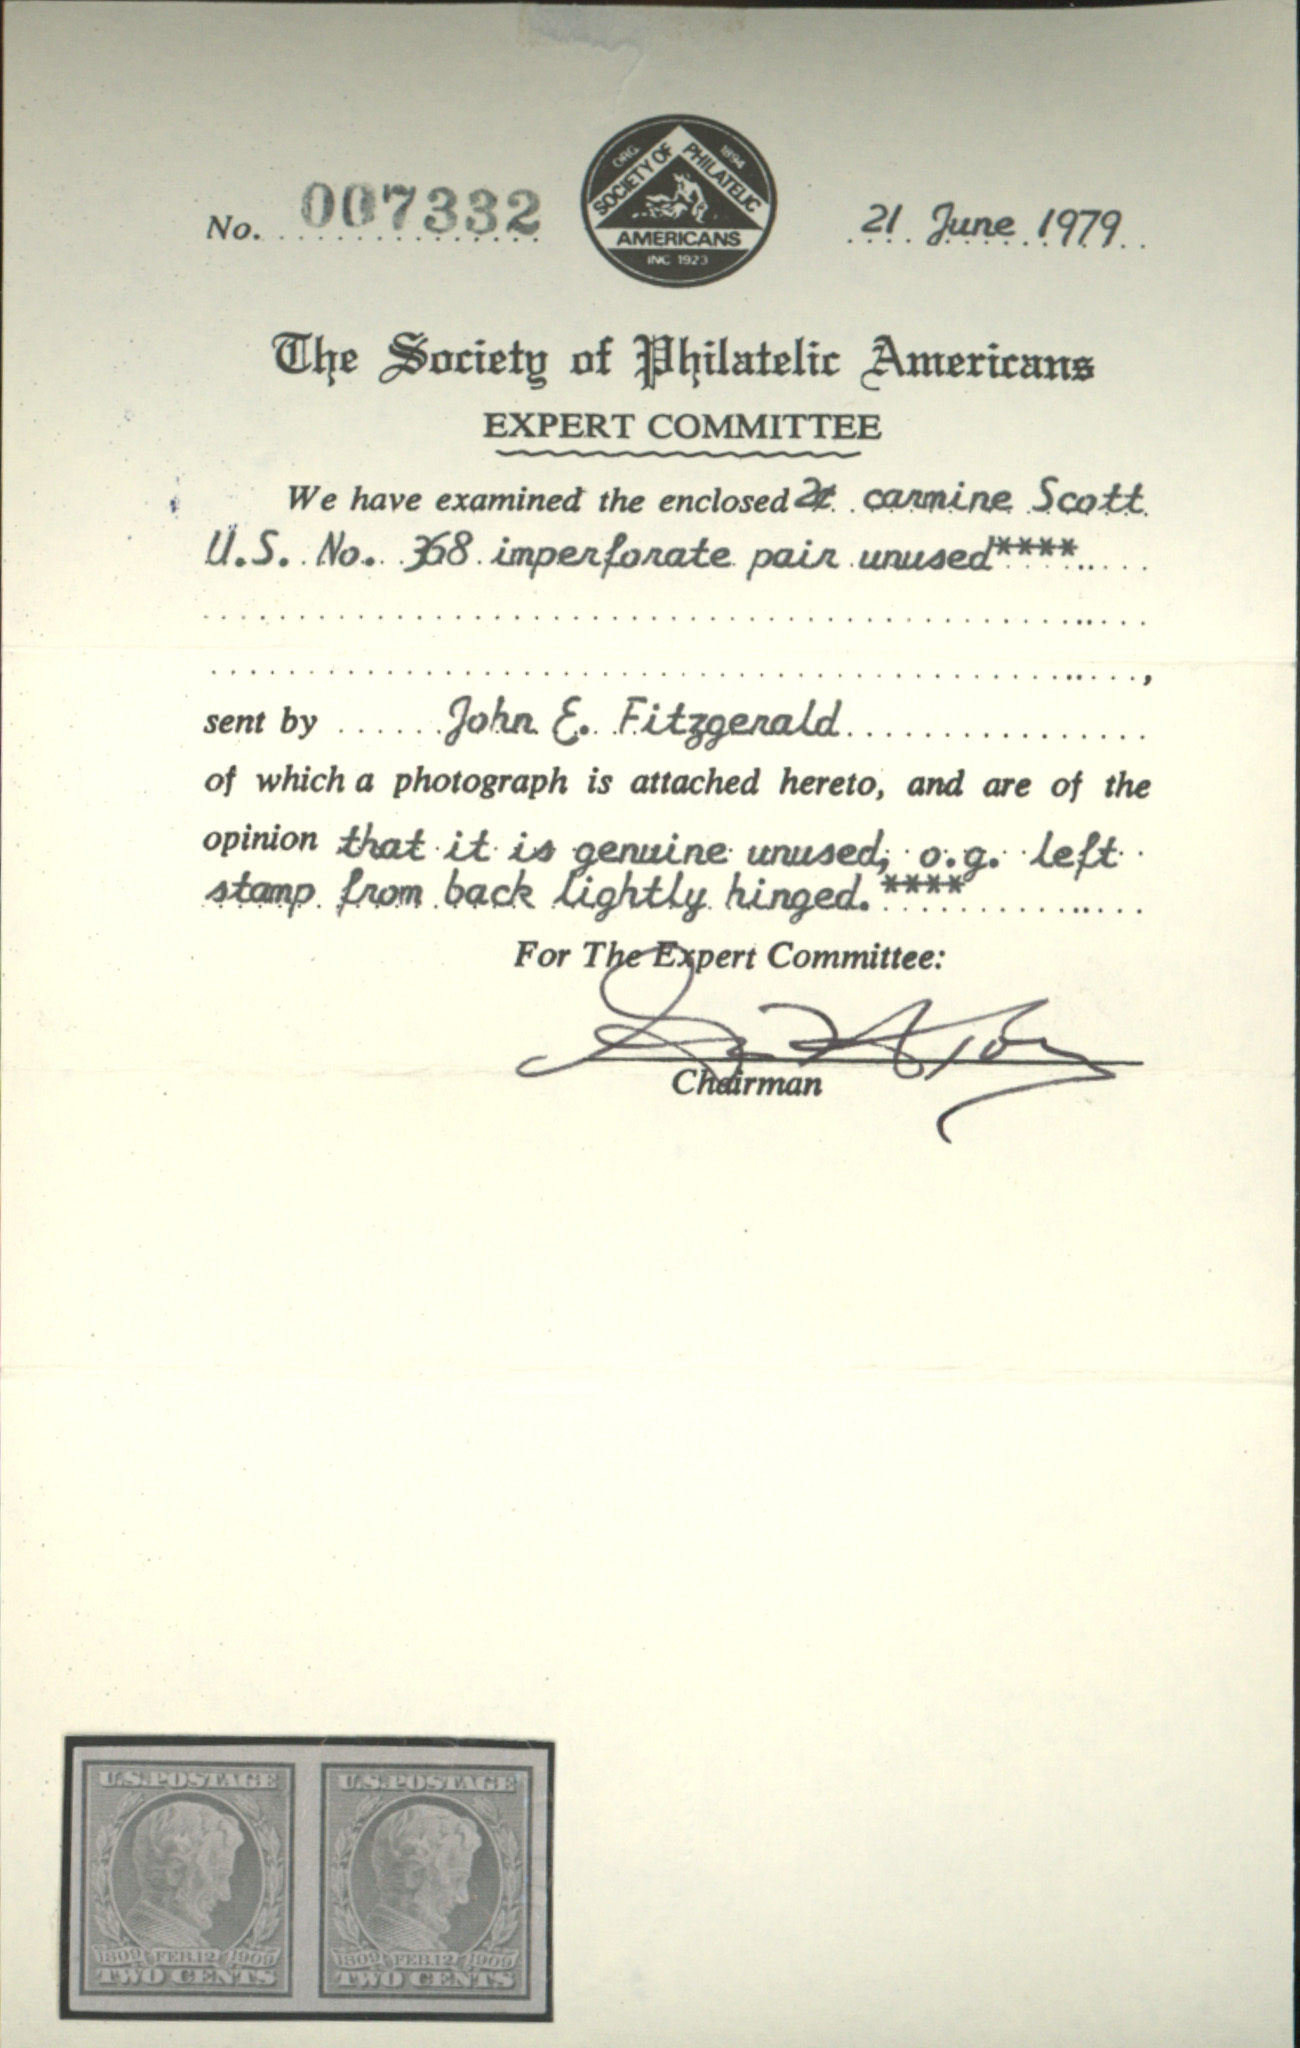 No. 007332
ORG. 1894
SOCIETY OF PHILATELIC
AMERICANS
INC 1923
21 June 1979
The Society of Philatelic Americans
EXPERT COMMITTEE
We have examined the enclosed 2¢ carmine Scott
U.S. No. 368 imperforate pair unused****
,
sent by John E. Fitzgerald
of which a photograph is attached hereto, and are of the
opinion that it is genuine unused, o.g. left
stamp from back lightly hinged.****
For The Expert Committee:
Chairman
U.S. POSTAGE U.S. POSTAGE
1809 FEB. 12 1909 1809 FEB. 12 1909
TWO CENTS TWO CENTS